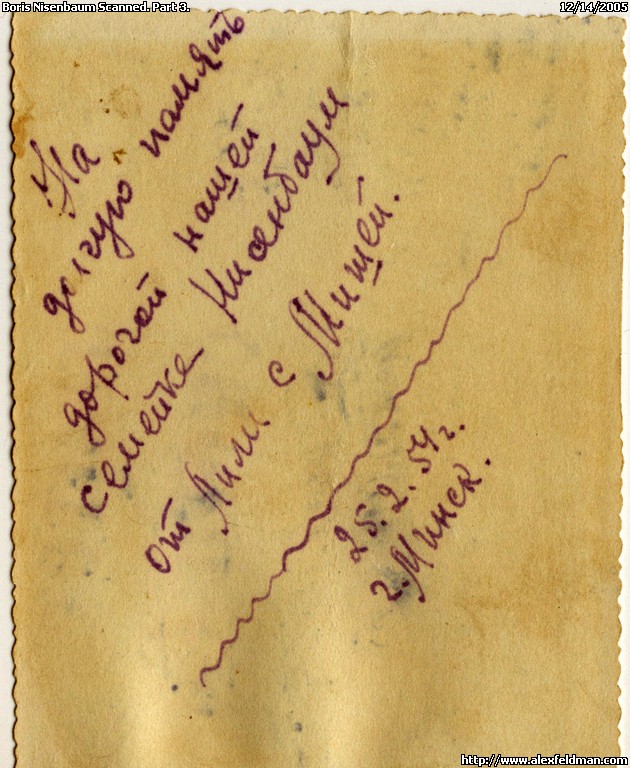 Boris Nisenbaum Scanned. Part 3.
12/14/2005
На
долгую память
дорогой нашей
семейке Нисенбаум
от Лили с Мишей.
25.2.54г.
г. Минск.
http://www.alexfeldman.com